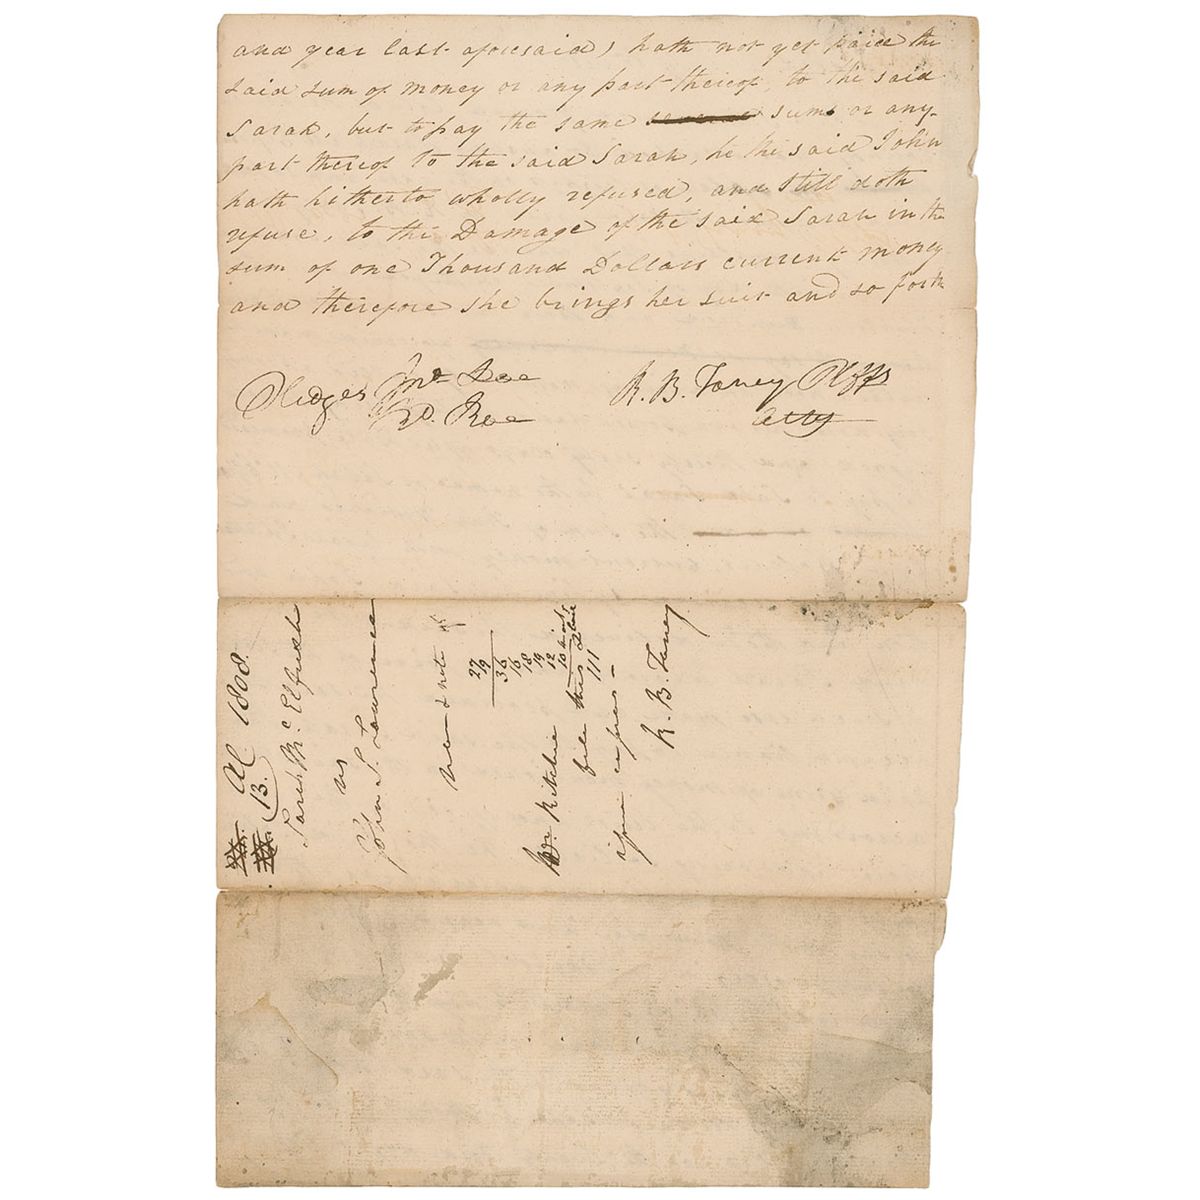 and year last aforesaid) hath not yet paid the
said sum of money or any part thereof, to the said
Sarah, but to pay the same sums or any
part thereof to the said Sarah, he the said John
hath hitherto wholly refused, and still doth
refuse, to the Damage of the said Sarah in the
sum of one Thousand Dollars current money
and therefore she brings her suit and so forth
Pledges Jno. Doe
Rd. Roe
R. B. Taney Plffs
atty
Al 1808.
13.
Sarah McElfresh
vs
John S. Lawrence
Narr &
27
19
36
16
18
19
12
10
111
Mr. Ritchie
file this
R. B. Taney